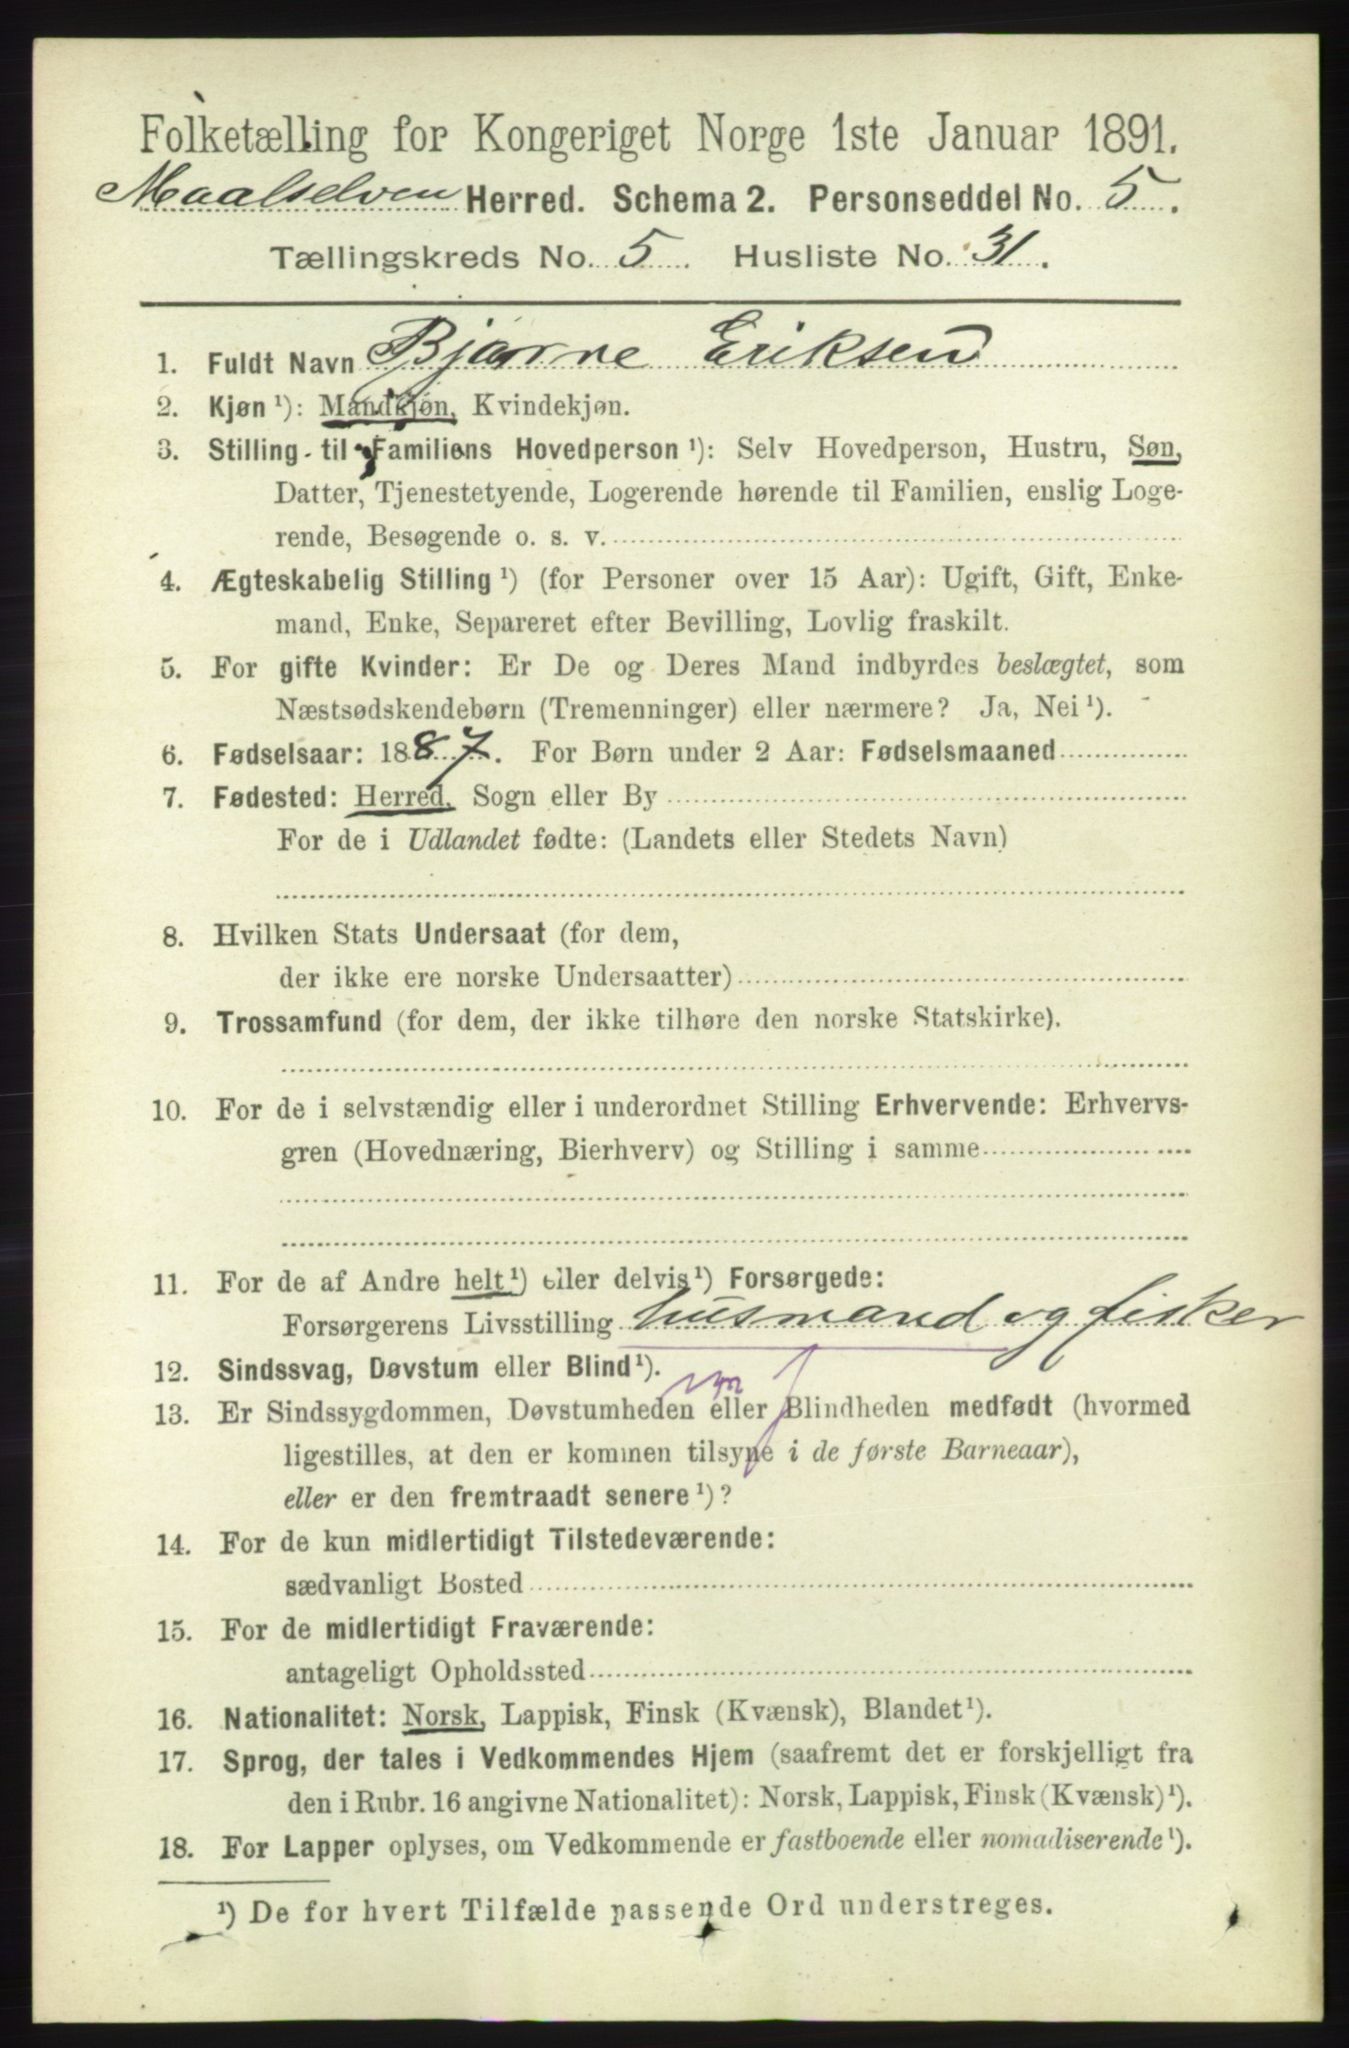 Folketælling for Kongeriget Norge 1ste Januar 1891.
Maalselven Herred. Schema 2. Personseddel No. 5.
Tællingskreds No. 5. Husliste No. 31.
1. Fuldt Navn Bjarne Eriksen
2. Kjøn ¹): Mandkjøn, Kvindekjøn.
3. Stilling til Familiens Hovedperson ¹): Selv Hovedperson, Hustru, Søn,
Datter, Tjenestetyende, Logerende hørende til Familien, enslig Loge-
rende, Besøgende o. s. v.
4. Ægteskabelig Stilling ¹) (for Personer over 15 Aar): Ugift, Gift, Enke-
mand, Enke, Separeret efter Bevilling, Lovlig fraskilt.
5. For gifte Kvinder: Er De og Deres Mand indbyrdes beslægtet, som
Næstsødskendebørn (Tremenninger) eller nærmere? Ja, Nei ¹).
6. Fødselsaar: 1887. For Børn under 2 Aar: Fødselsmaaned
7. Fødested: Herred, Sogn eller By
For de i Udlandet fødte: (Landets eller Stedets Navn)
8. Hvilken Stats Undersaat (for dem,
der ikke ere norske Undersaatter)
9. Trossamfund (for dem, der ikke tilhøre den norske Statskirke).
10. For de i selvstændig eller i underordnet Stilling Erhvervende: Erhvervs-
gren (Hovednæring, Bierhverv) og Stilling i samme
11. For de af Andre helt ¹) eller delvis ¹) Forsørgede:
Forsørgerens Livsstilling husmand og fisker
12. Sindssvag, Døvstum eller Blind ¹).
13. Er Sindssygdommen, Døvstumheden eller Blindheden medfødt (hvormed
ligestilles, at den er kommen tilsyne i de første Barneaar),
eller er den fremtraadt senere ¹)?
14. For de kun midlertidigt Tilstedeværende:
sædvanligt Bosted
15. For de midlertidigt Fraværende:
antageligt Opholdssted
16. Nationalitet: Norsk, Lappisk, Finsk (Kvænsk), Blandet ¹).
17. Sprog, der tales i Vedkommendes Hjem (saafremt det er forskjelligt fra
den i Rubr. 16 angivne Nationalitet): Norsk, Lappisk, Finsk (Kvænsk) ¹).
18. For Lapper oplyses, om Vedkommende er fastboende eller nomadiserende ¹).
¹) De for hvert Tilfælde passende Ord understreges.